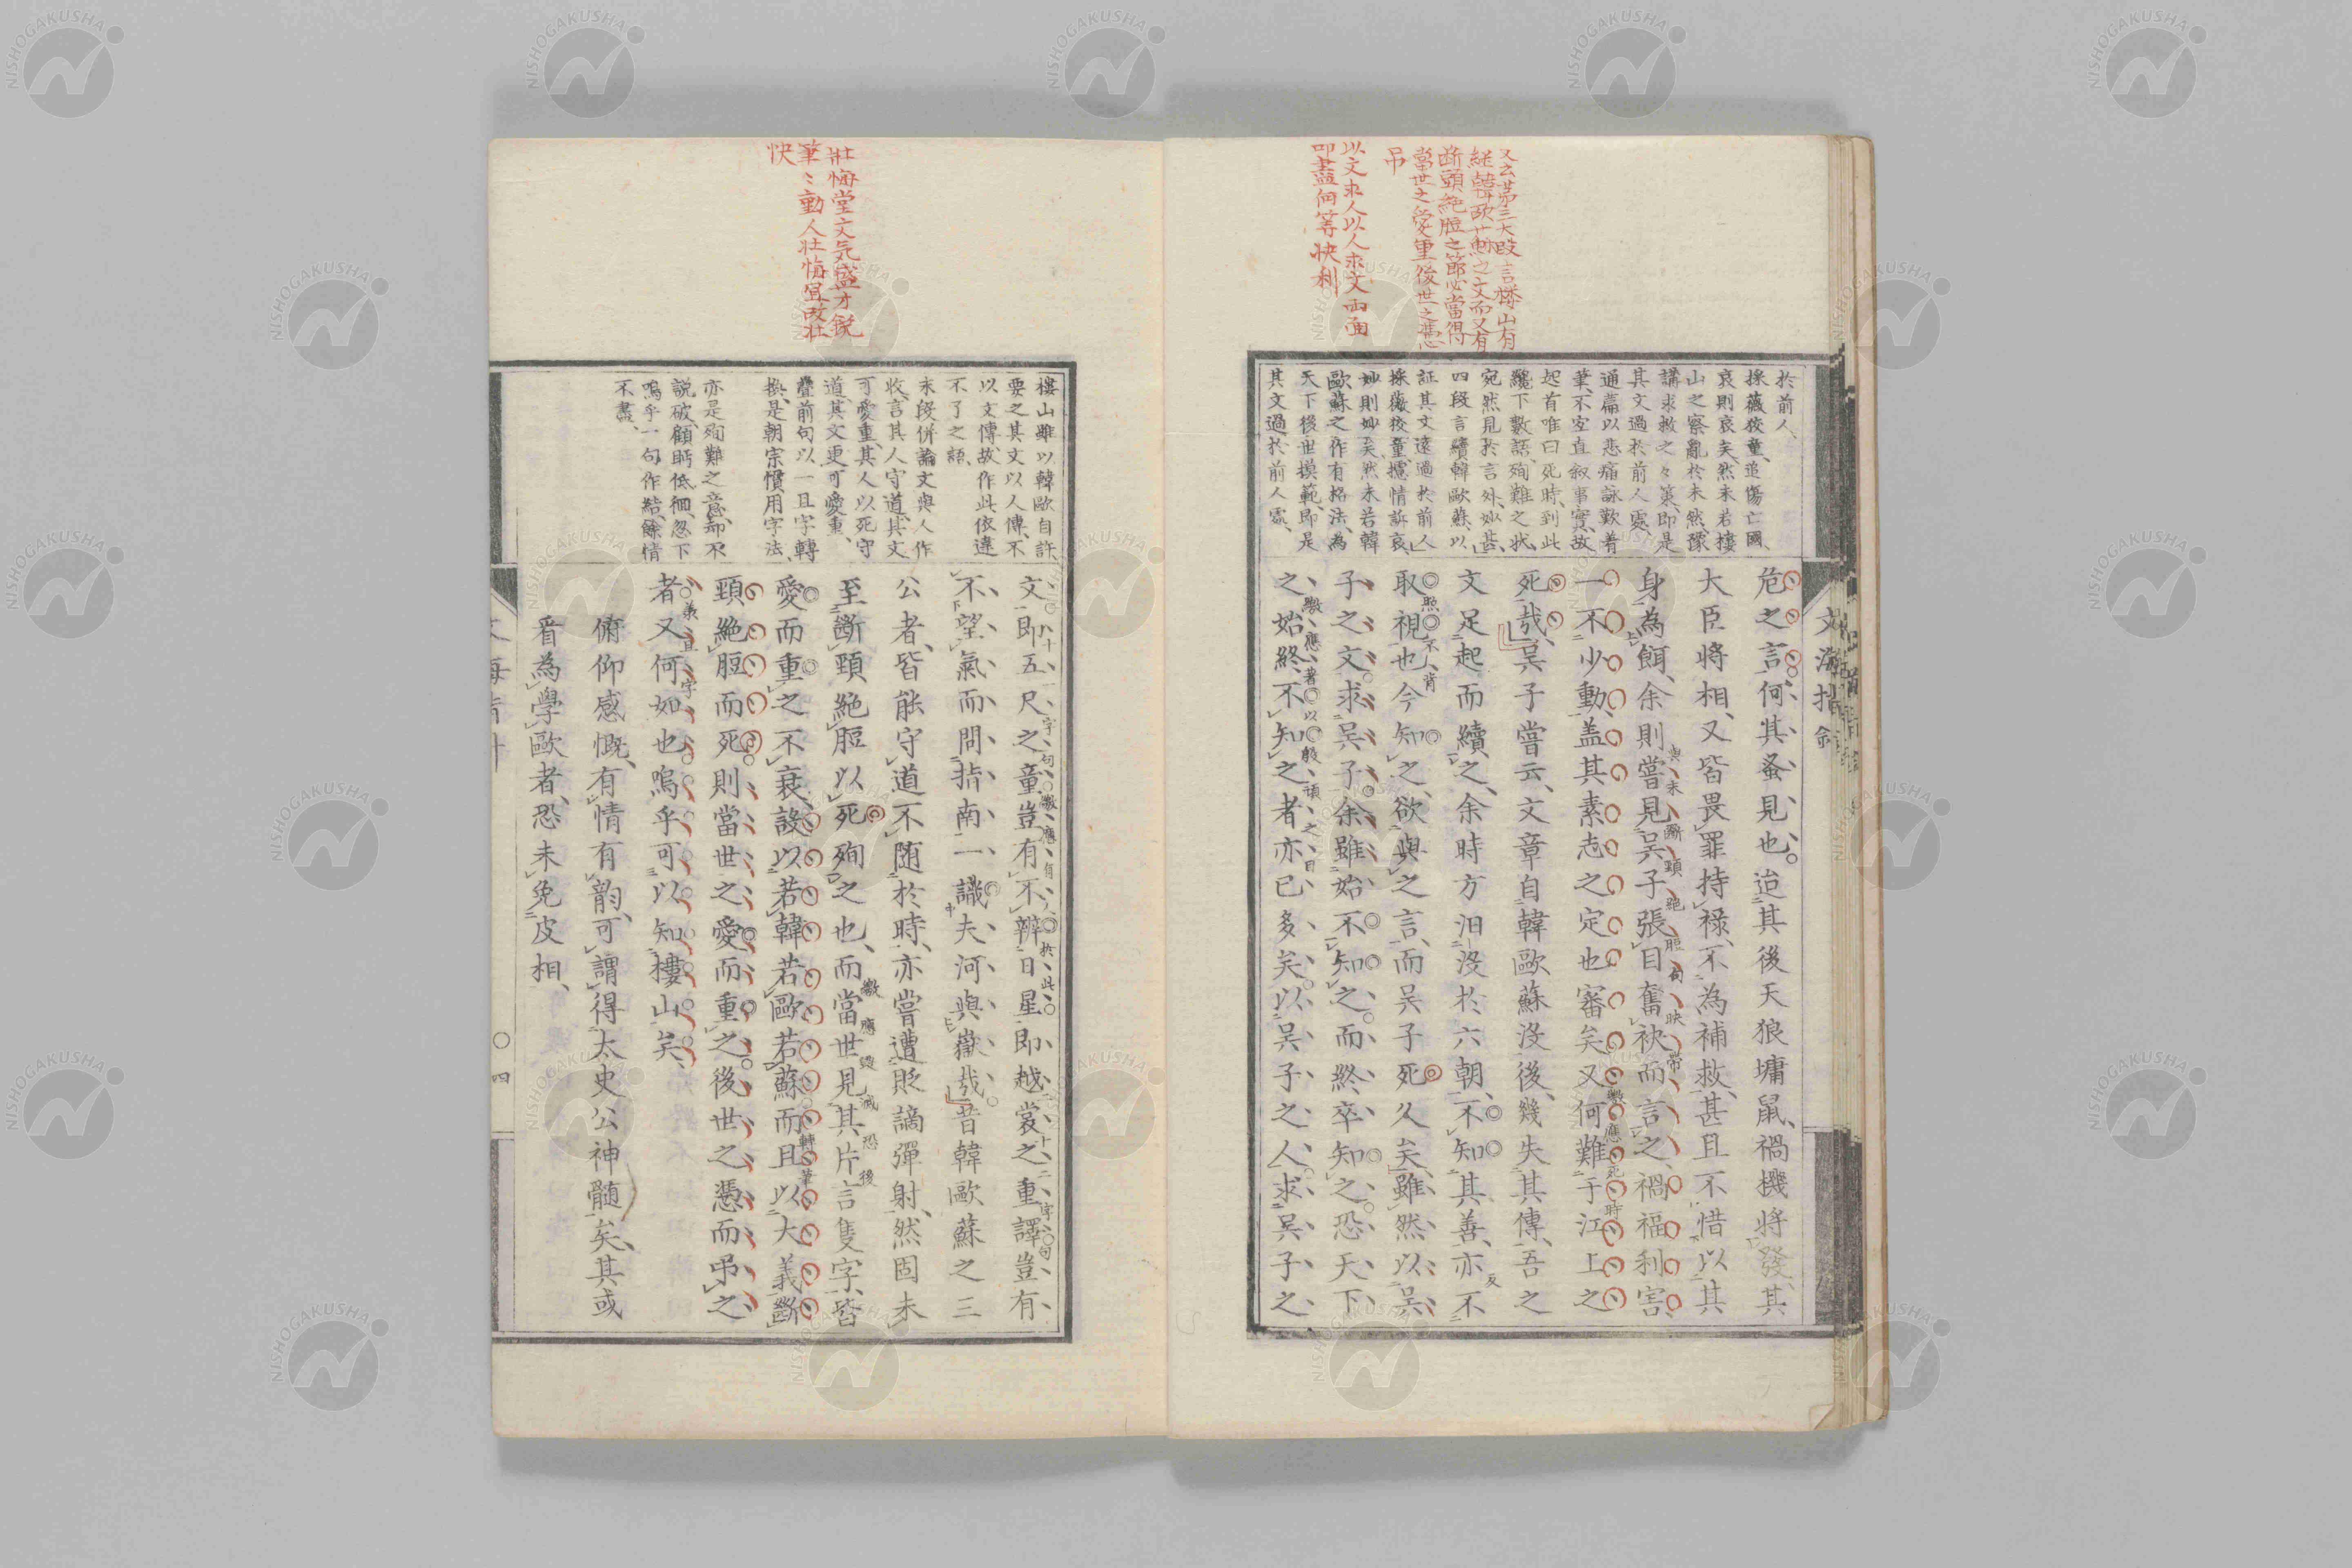 又云第三大段言樓山有
継韓欧蘓之文而又有
断頭絶脰之節必當得
當世之愛重後世之憑
吊
以文求人以人求文両面
叩盡何等快利
於前人、
採薇狡童、追傷亡國、
哀則哀矣、然未若樓
山之察亂於未然、豫
講求救之々策、即是
其文過於前人處、
通篇以悲痛詠歎着
筆、不空直叙事實、故
起首唯曰死時、到此
纔下數語、殉難之状、
宛然見於言外、妙甚、
四段言續韓歐蘇、以
証其文遠過於前人、
採薇狡童、攄情訴哀、
妙則妙矣、然未若韓
歐蘇之作有格法、為
天下後世摸範、即是
其文過於前人處、
文海指針
危之言、何其蚤見也。迨其後天狼墉鼠、禍機将發、其
大臣将相、又皆畏罪持禄、不為補救、甚且不惜以其
身為餌、余則嘗見吳子張目奮袂而言之、禍福利害、
一不少動、盖其素志之定也審矣、又何難于江上之
死哉、吳子嘗云、文章自韓歐蘇沒後、幾失其傳、吾之
文足起而續之、余時方汨沒於六朝、不知其善、亦不
取視也、今知之、欲與之言、而吳子死久矣、雖然、以吳
子之文、求吳子、余雖始不知之、而終卒知之、恐天下
之始終不知之者、亦已多矣、以吳子之人、求吳子之
壯悔堂文気盛才鋭
筆〻動人壮悔冝改壮
快
樓山雖以韓歐自許、
要之其文以人傳、不
以文傳、故作此依違
不了之語、
末段併論文與人作
收、言其人守道、其文
可愛重、其人以死守
道、其文更可愛重、
疊前句以一且字轉
換、是朝宗慣用字法、
亦是殉難之意、却不
説破、顧眄低徊、忽下
嗚乎一句作結、餘情
不盡、
文、即五尺之童、豈有不辨日星、即越裳之重譯、豈有
不望氣而問指南、一識夫河與嶽哉、昔韓歐蘇之三
公者、皆能守道不随於時、亦嘗遭貶謫彈射、然固未
至斷頸絶脰、以死殉之也、而當世見其片言隻字、皆
愛而重之不衰、設以若韓若歐若蘇、而且以大義斷
頸絶脰而死、則當世之愛而重之、後世之憑而弔之
者、又何如也、嗚乎、可以知樓山矣、
俯仰感慨、有情有韵、可謂得太史公神髄矣、其或
㫺為學歐者、恐未免皮相、
四